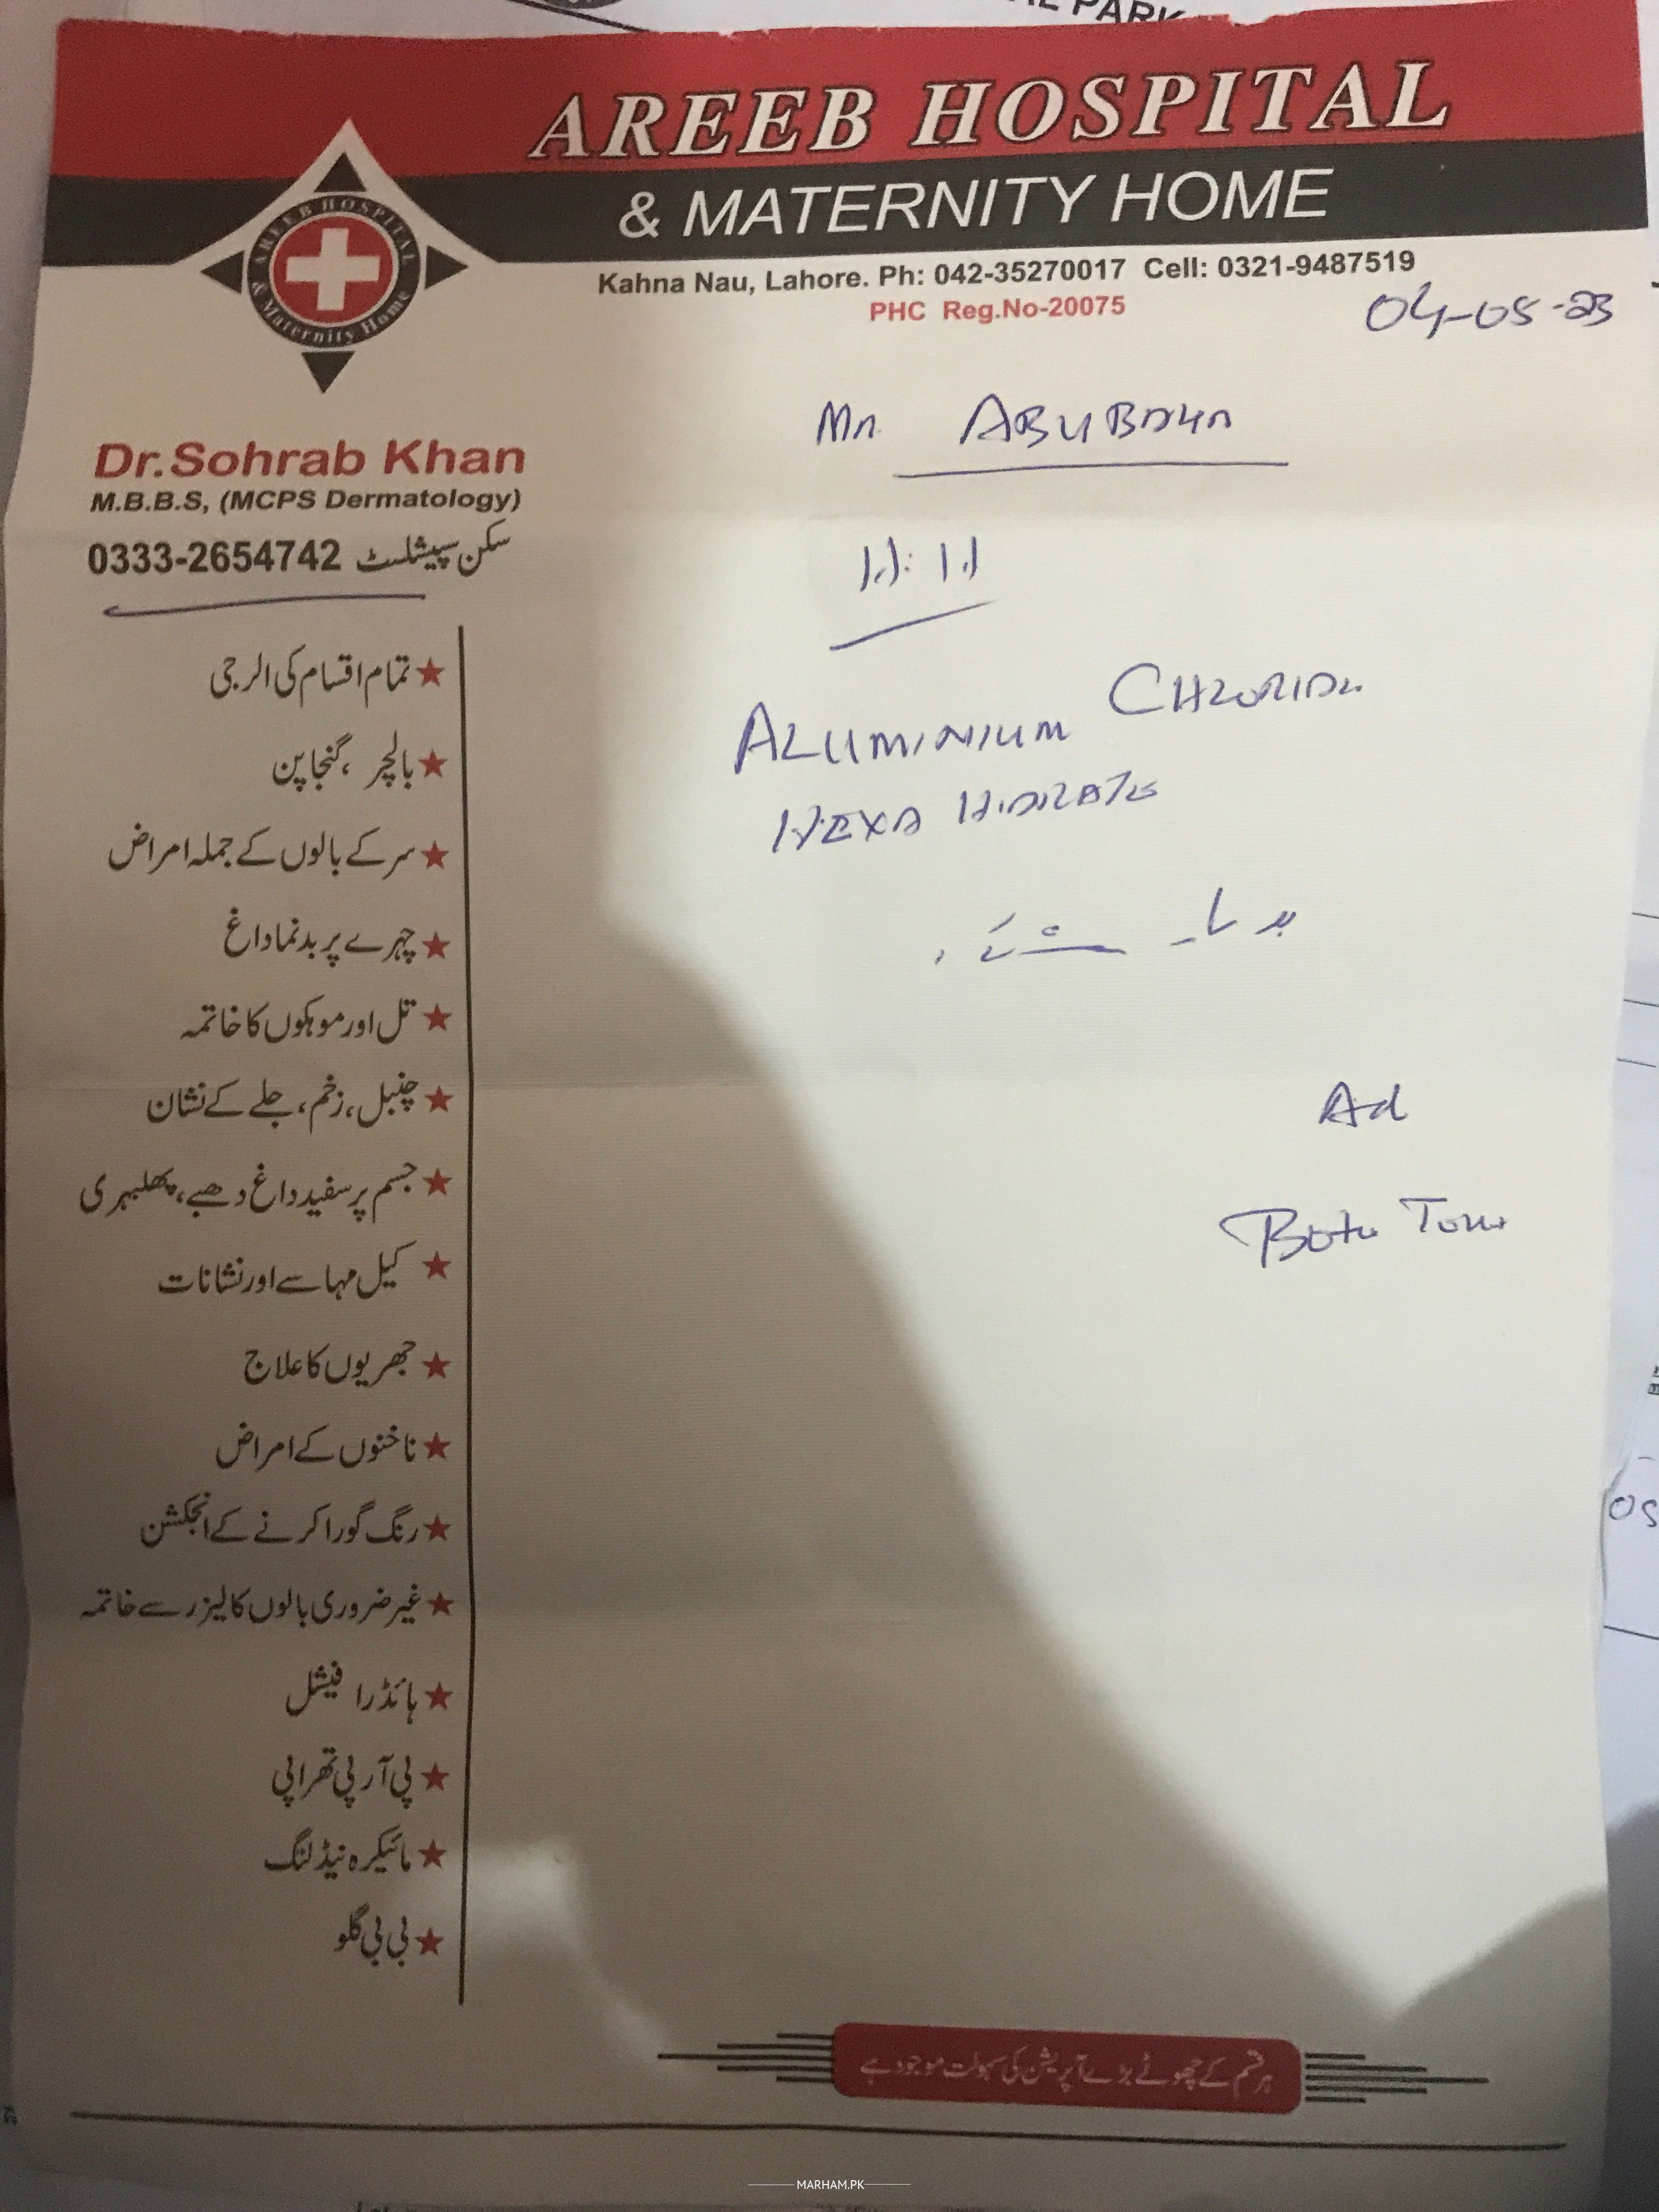 AL PARK
AREEB HOSPITAL
& MATERNITY HOME
AREEB HOSPITAL & Maternity Home
Kahna Nau, Lahore. Ph: 042-35270017 Cell: 0321-9487519
PHC Reg.No-20075
04-05-23
Mr. ABUBAKR
Dr.Sohrab Khan
M.B.B.S, (MCPS Dermatology)
0333-2654742 سکن سپیشلسٹ
H.H
ALUMINIUM CHLORIDE
HEXA HIDRATE
Ad
★ تمام اقسام کی الرجی
★ بالچر، گنجا پن
★ سر کے بالوں کے جملہ امراض
★ چہرے پر بدنما داغ
★ تل اور موہکوں کا خاتمہ
★ چنبل، زخم، جلے کے نشان
★ جسم پر سفید داغ دھبے، پھلبہری
★ کیل مہاسے اور نشانات
★ جھریوں کا علاج
★ ناخنوں کے امراض
★ رنگ گورا کرنے کے انجکشن
★ غیر ضروری بالوں کا لیزر سے خاتمہ
★ ہائڈرا فیشل
★ پی آر پی تھراپی
★ مائیکرہ نیڈلنگ
★ بی بی گلو
ہر قسم کے چھوٹے بڑے آپریشن کی سہولت موجود ہے
MARHAM.PK